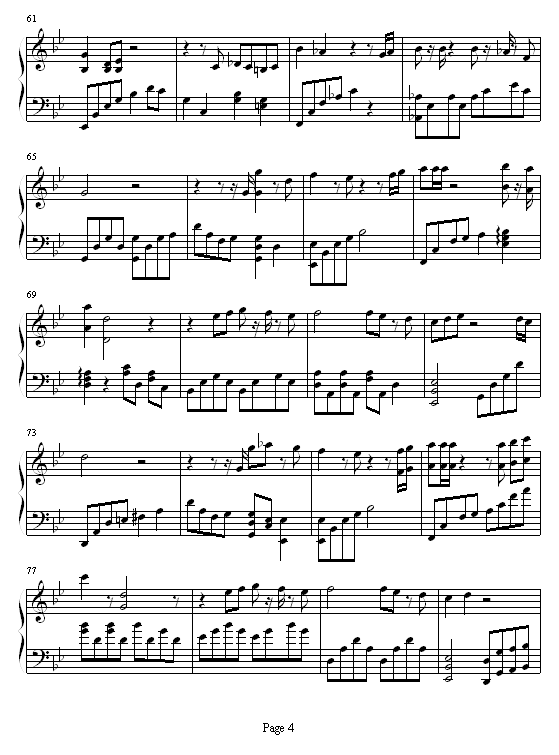 61
65
69
73
77
Page 4